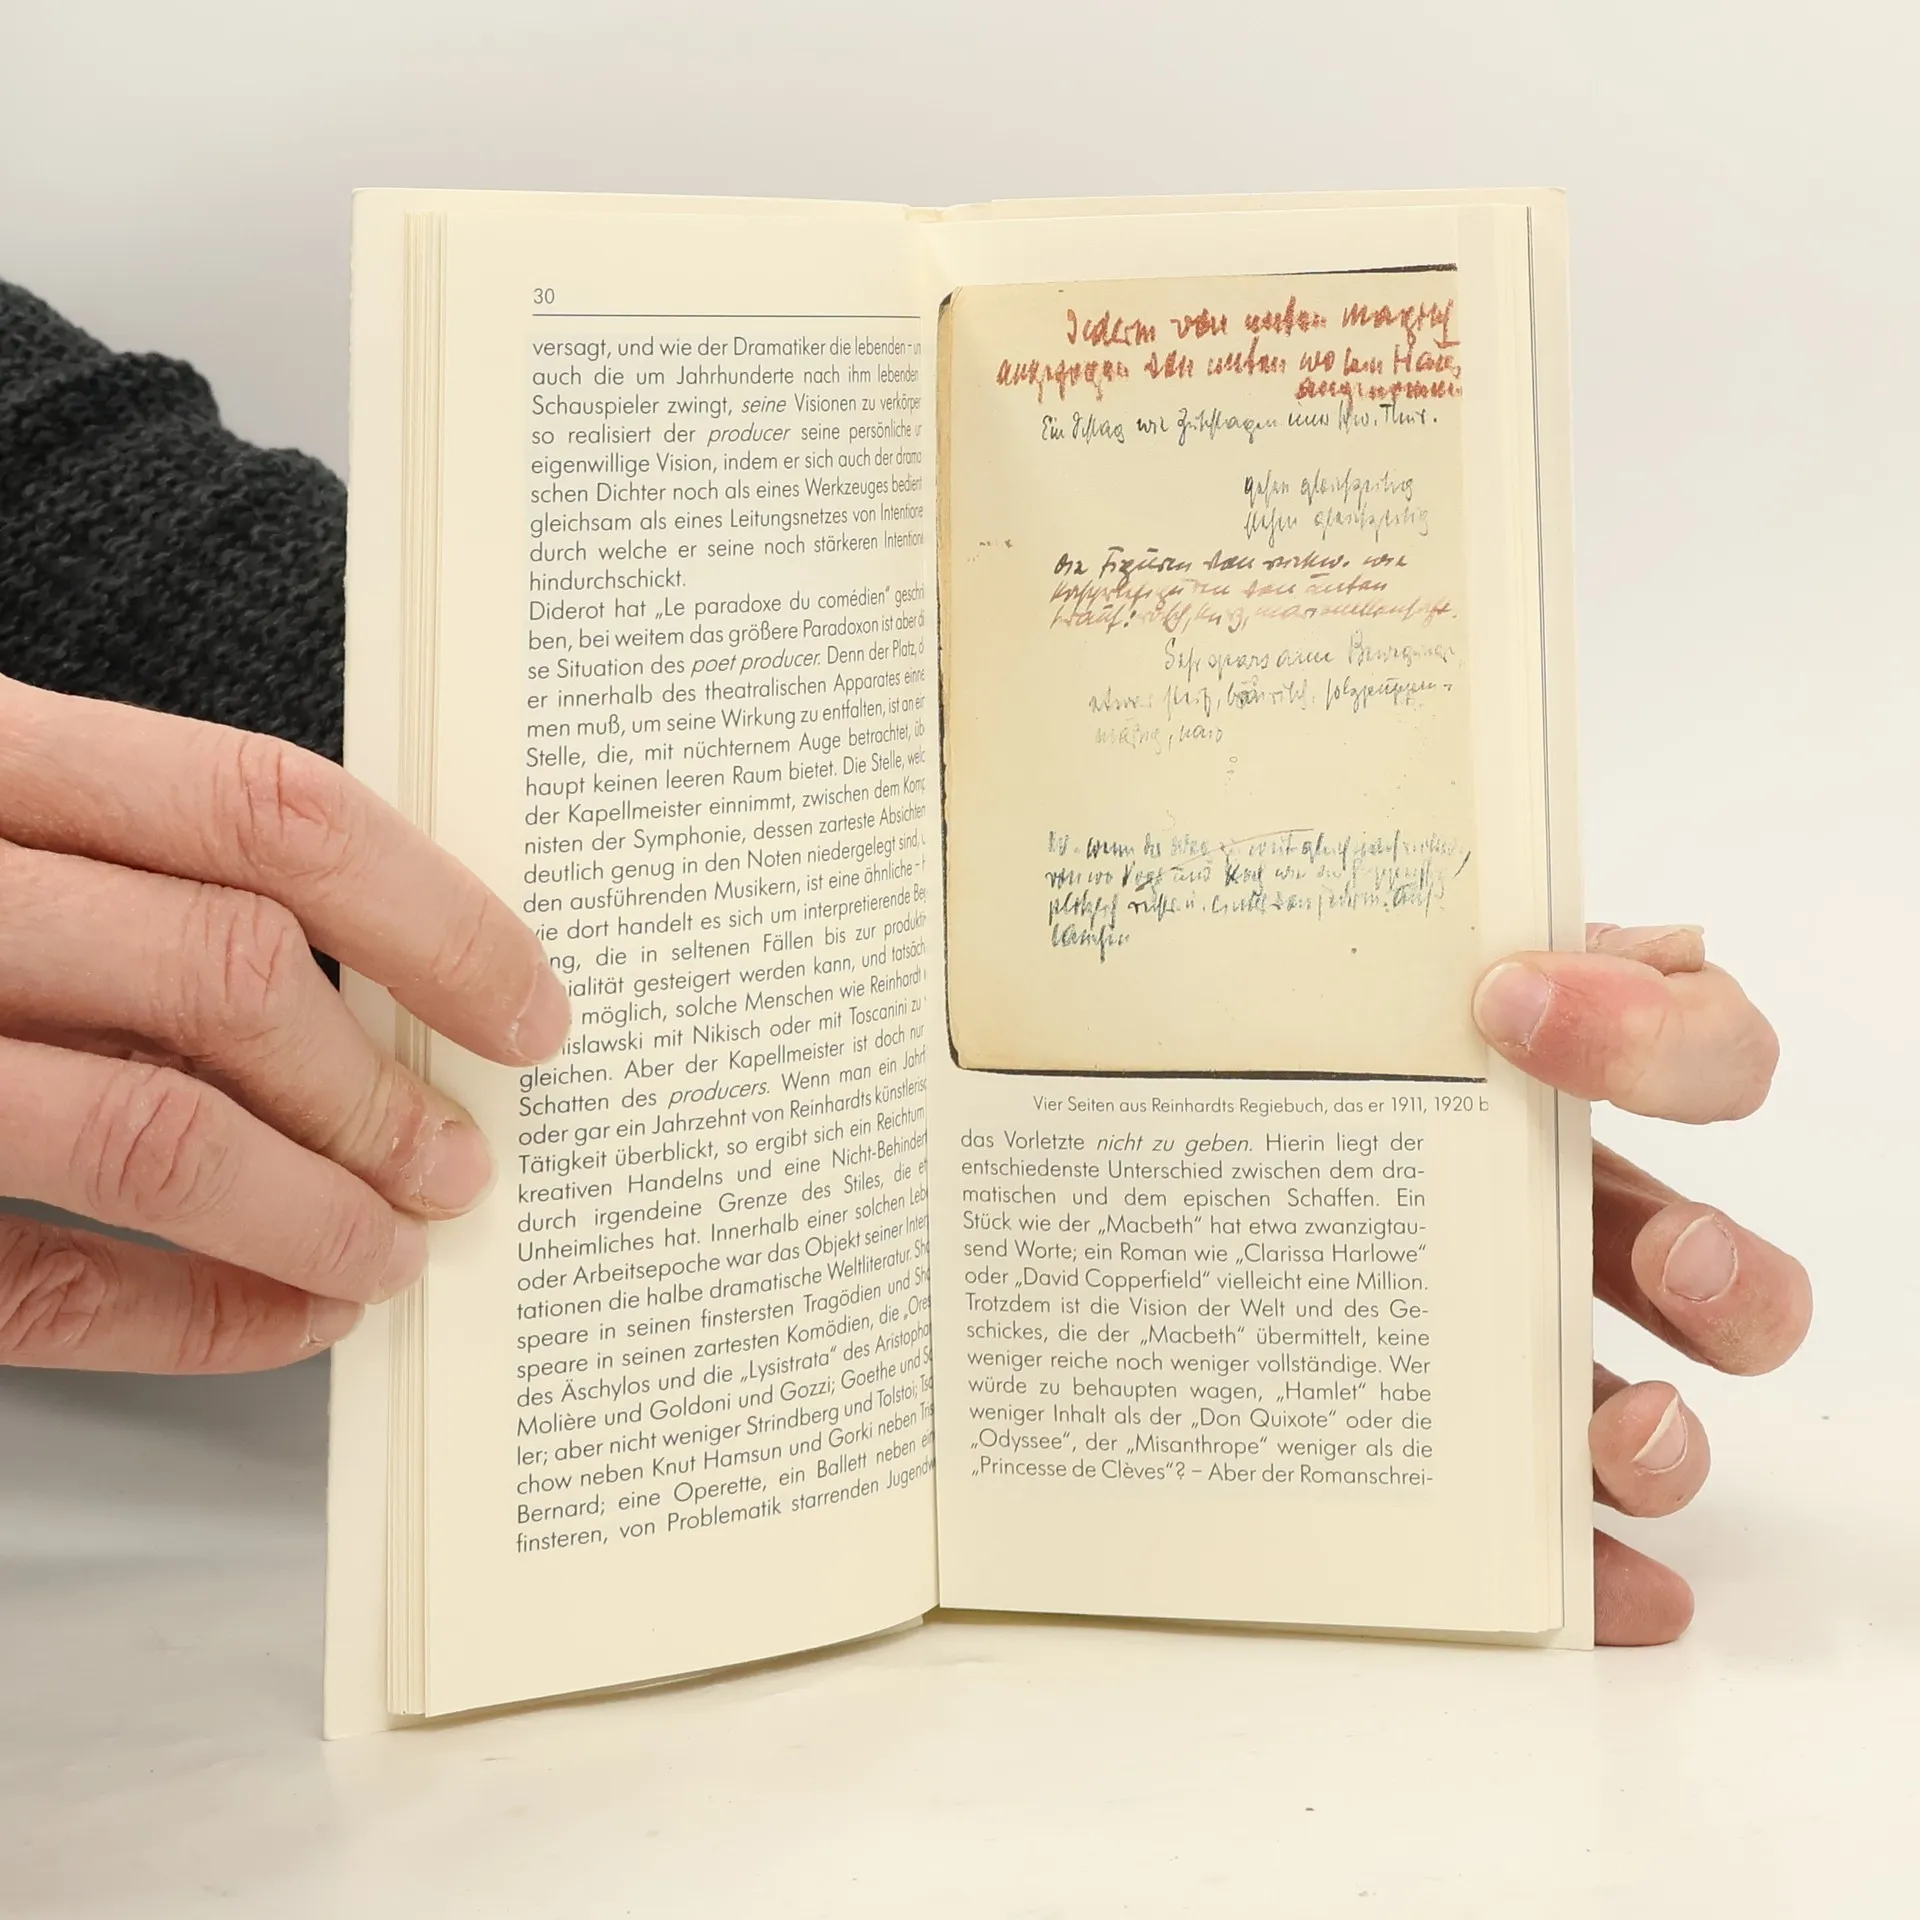 30
versagt, und wie der Dramatiker die lebenden – un
auch die um Jahrhunderte nach ihm lebenden
Schauspieler zwingt, seine Visionen zu verkörper
so realisiert der producer seine persönliche u
eigenwillige Vision, indem er sich auch der drama
schen Dichter noch als eines Werkzeuges bedient
gleichsam als eines Leitungsnetzes von Intentione
durch welche er seine noch stärkeren Intention
hindurchschickt.
Diderot hat „Le paradoxe du comédien“ geschri
ben, bei weitem das größere Paradoxon ist aber di
se Situation des poet producer. Denn der Platz, d
er innerhalb des theatralischen Apparates einne
men muß, um seine Wirkung zu entfalten, ist an ein
Stelle, die, mit nüchternem Auge betrachtet, üb
haupt keinen leeren Raum bietet. Die Stelle, welc
der Kapellmeister einnimmt, zwischen dem Komp
nisten der Symphonie, dessen zarteste Absichten
deutlich genug in den Noten niedergelegt sind, u
den ausführenden Musikern, ist eine ähnliche –
ie dort handelt es sich um interpretierende Be
ng, die in seltenen Fällen bis zur produkti
ialität gesteigert werden kann, und tatsäch
möglich, solche Menschen wie Reinhardt
islawski mit Nikisch oder mit Toscanini zu
gleichen. Aber der Kapellmeister ist doch nur
Schatten des producers. Wenn man ein Jahr
oder gar ein Jahrzehnt von Reinhardts künstleris
Tätigkeit überblickt, so ergibt sich ein Reichtum
kreativen Handelns und eine Nicht-Behinder
durch irgendeine Grenze des Stiles, die et
Unheimliches hat. Innerhalb einer solchen Leb
oder Arbeitsepoche war das Objekt seiner Inter
tationen die halbe dramatische Weltliteratur. Sha
speare in seinen finstersten Tragödien und Sha
speare in seinen zartesten Komödien, die „Ores
des Äschylos und die „Lysistrata“ des Aristopha
Molière und Goldoni und Gozzi; Goethe und Sc
ler; aber nicht weniger Strindberg und Tolstoi; Tsc
chow neben Knut Hamsun und Gorki neben Tris
Bernard; eine Operette, ein Ballett neben ein
finsteren, von Problematik starrenden Jugendw
Jederm von unten
von unten wo
Ein Schlag wie Zuschlagen einer Thür.
gehen gleichzeitig
stehen gleichzeitig
die Figuren von wie
von unten
Sehr sparsame Bewegungen
etwas steif, bäurisch,
naiv
wenn
von wo Vogt und Koch wie
plötzlich rechts u. links von Jederm.
laufen
Vier Seiten aus Reinhardts Regiebuch, das er 1911, 1920 b
das Vorletzte nicht zu geben. Hierin liegt der
entschiedenste Unterschied zwischen dem dra-
matischen und dem epischen Schaffen. Ein
Stück wie der „Macbeth“ hat etwa zwanzigtau-
send Worte; ein Roman wie „Clarissa Harlowe“
oder „David Copperfield“ vielleicht eine Million.
Trotzdem ist die Vision der Welt und des Ge-
schickes, die der „Macbeth“ übermittelt, keine
weniger reiche noch weniger vollständige. Wer
würde zu behaupten wagen, „Hamlet“ habe
weniger Inhalt als der „Don Quixote“ oder die
„Odyssee“, der „Misanthrope“ weniger als die
„Princesse de Clèves“? – Aber der Romanschrei-